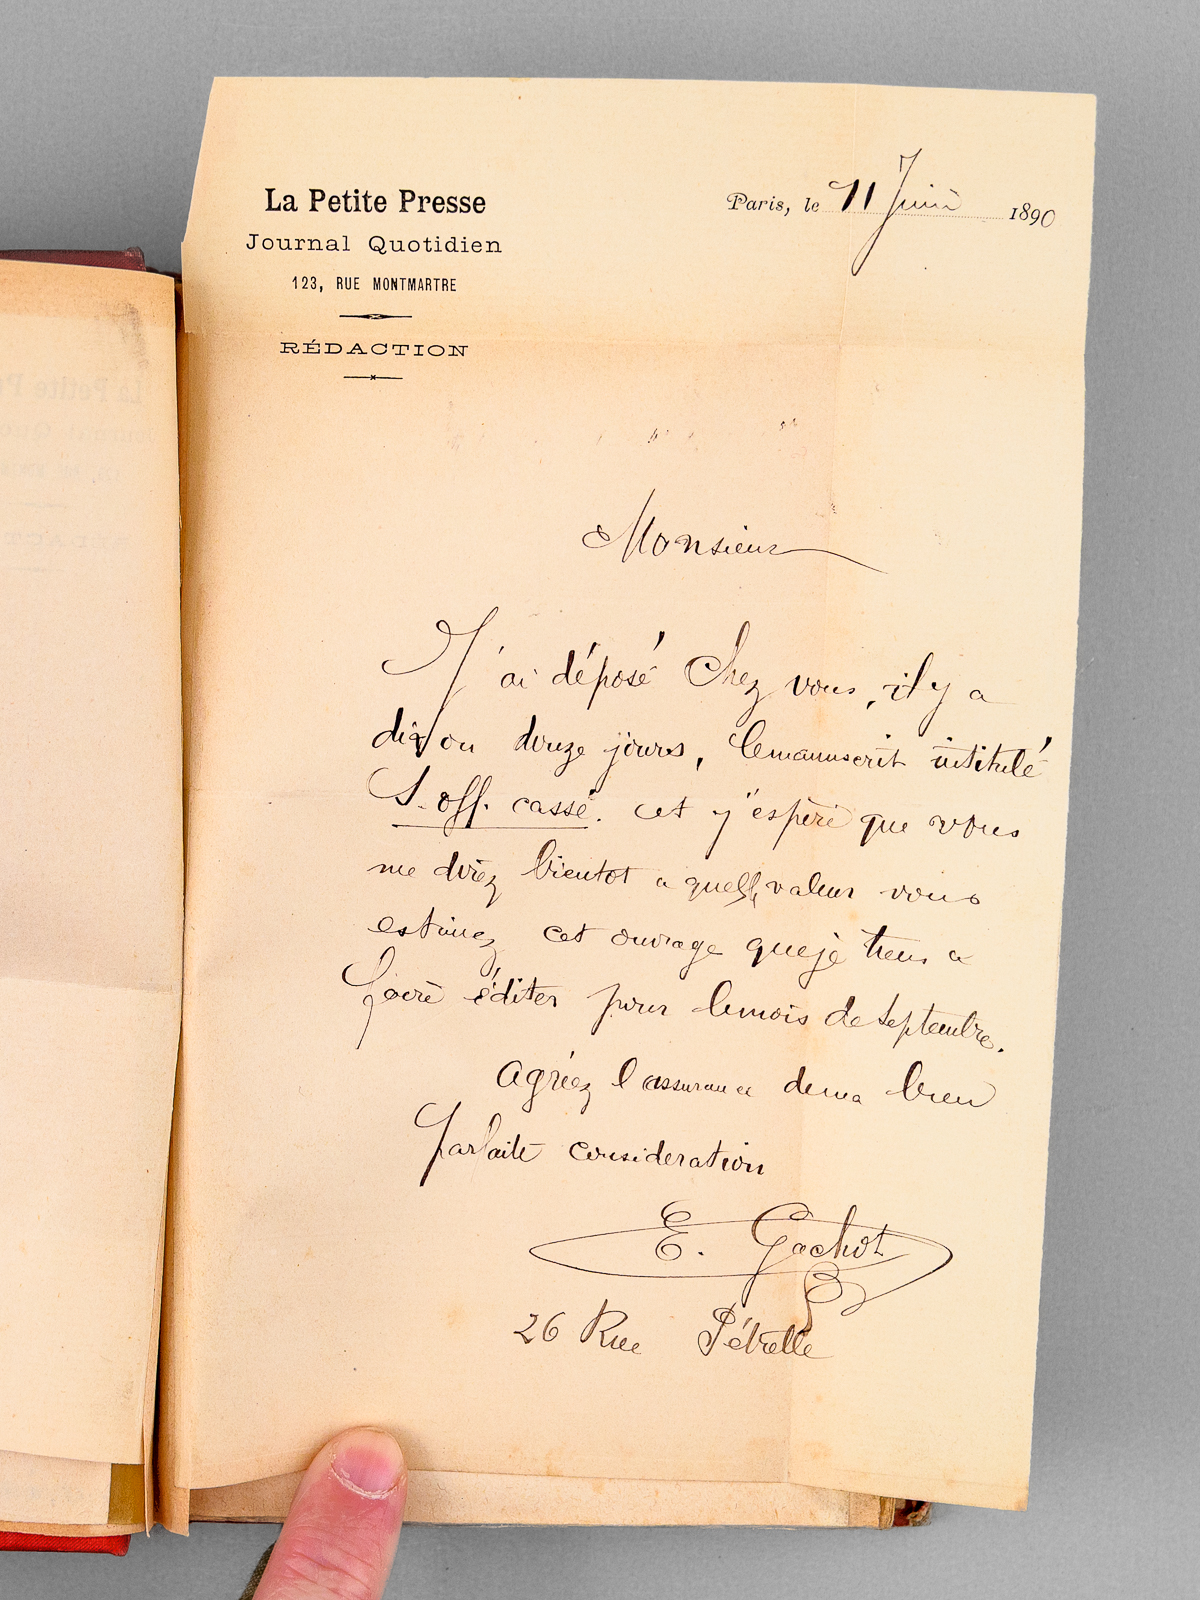 La Petite Presse
Journal Quotidien
123, RUE MONTMARTRE
RÉDACTION
Paris, le 11 Juin 1890
Monsieur
J'ai déposé chez vous, il y a
dix ou douze jours, le manuscrit intitulé
S. off. cassé. et j'espère que vous
me direz bientot a quelle valeur vous
estimez cet ouvrage que je tiens a
faire éditer pour le mois de Septembre.
Agréez l'assurance de ma bien
parfaite consideration
E. Gachot
26 Rue Pétrelle